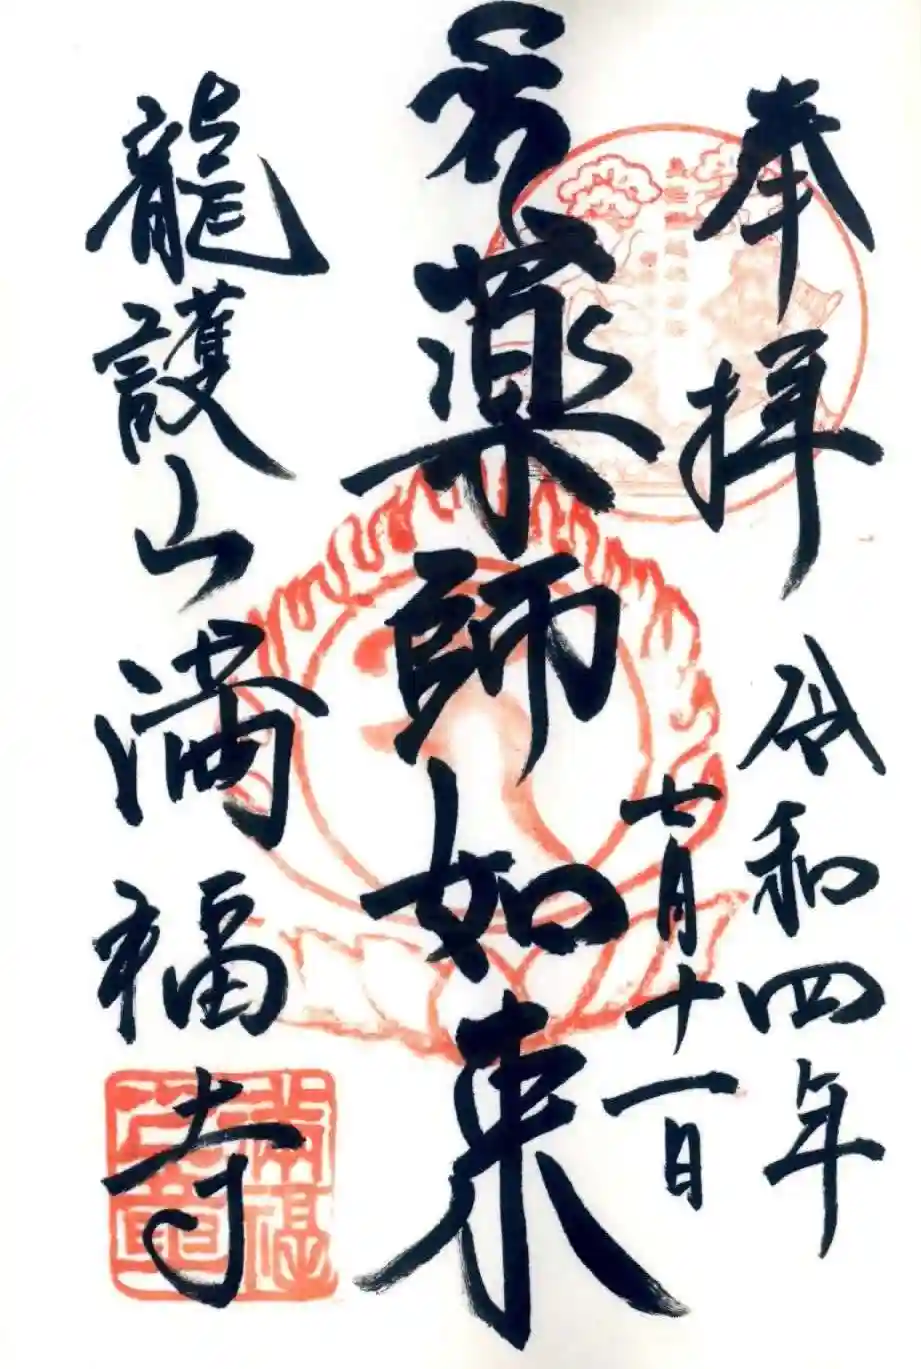 奉拝
令和四年
七月十一日
薬師如来
龍護山満福寺